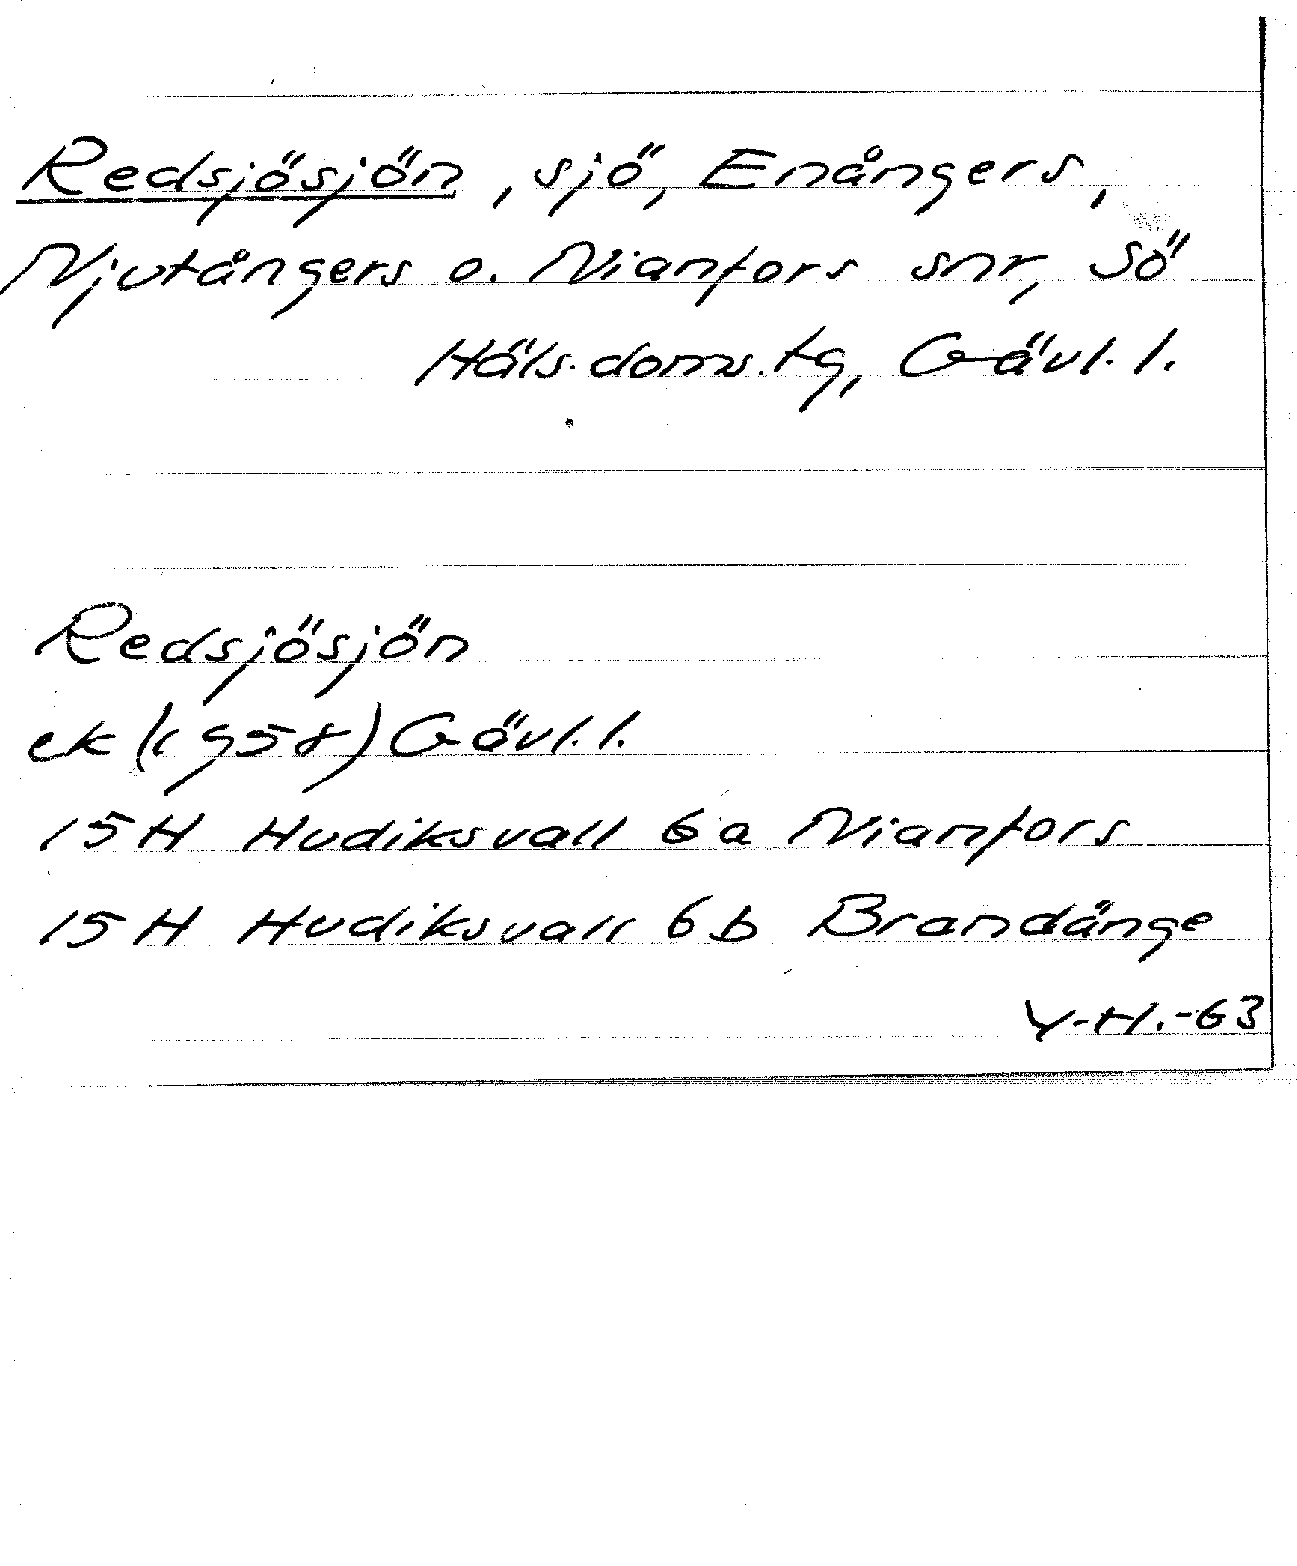 Redsjösjön, sjö, Enångers,
Njutångers o. Nianfors snr, Sö
Häls. doms. tg, Gävl. l.
Redsjösjön
ek (1958) Gävl. l.
15H Hudiksvall 6a Nianfors
15H Hudiksvall 6b Brandänge
Y-H.-63